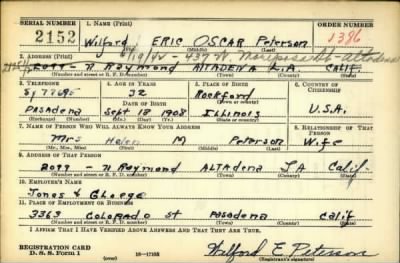 SERIAL NUMBER 1. NAME (Print) ORDER NUMBER
2152 Wilford ERIC OSCAR Peterson 1386
(First) (Middle) (Last)
2. ADDRESS (Print) 437 W. Mariposa St - Altadena
2077 - N Raymond ALTADENA L.A CALIF.
(Number and street or R. F. D. number) (Town) (County) (State)
3. TELEPHONE 4. AGE IN YEARS 5. PLACE OF BIRTH 6. COUNTRY OF CITIZENSHIP
32 Rockford
DATE OF BIRTH (Town or county)
Pasadena Sept 18 1908 Illinois U.S.A.
(Exchange) (Number) (Mo.) (Day) (Yr.) (State or country)
7. NAME OF PERSON WHO WILL ALWAYS KNOW YOUR ADDRESS 8. RELATIONSHIP OF THAT PERSON
Mrs Helen M Peterson Wife
(Mr., Mrs., Miss) (First) (Middle) (Last)
9. ADDRESS OF THAT PERSON
2077 - N Raymond ALTAdena LA Calif.
(Number and street or R. F. D. number) (Town) (County) (State)
10. EMPLOYER'S NAME
Jones &
11. PLACE OF EMPLOYMENT OR BUSINESS
3363 COLORADO ST PASADENA Calif
(Number and street or R. F. D. number) (Town) (County) (State)
I AFFIRM THAT I HAVE VERIFIED ABOVE ANSWERS AND THAT THEY ARE TRUE.
REGISTRATION CARD
D. S. S. Form 1 (over) 16-17105 Wilford E. Peterson
(Registrant's signature)